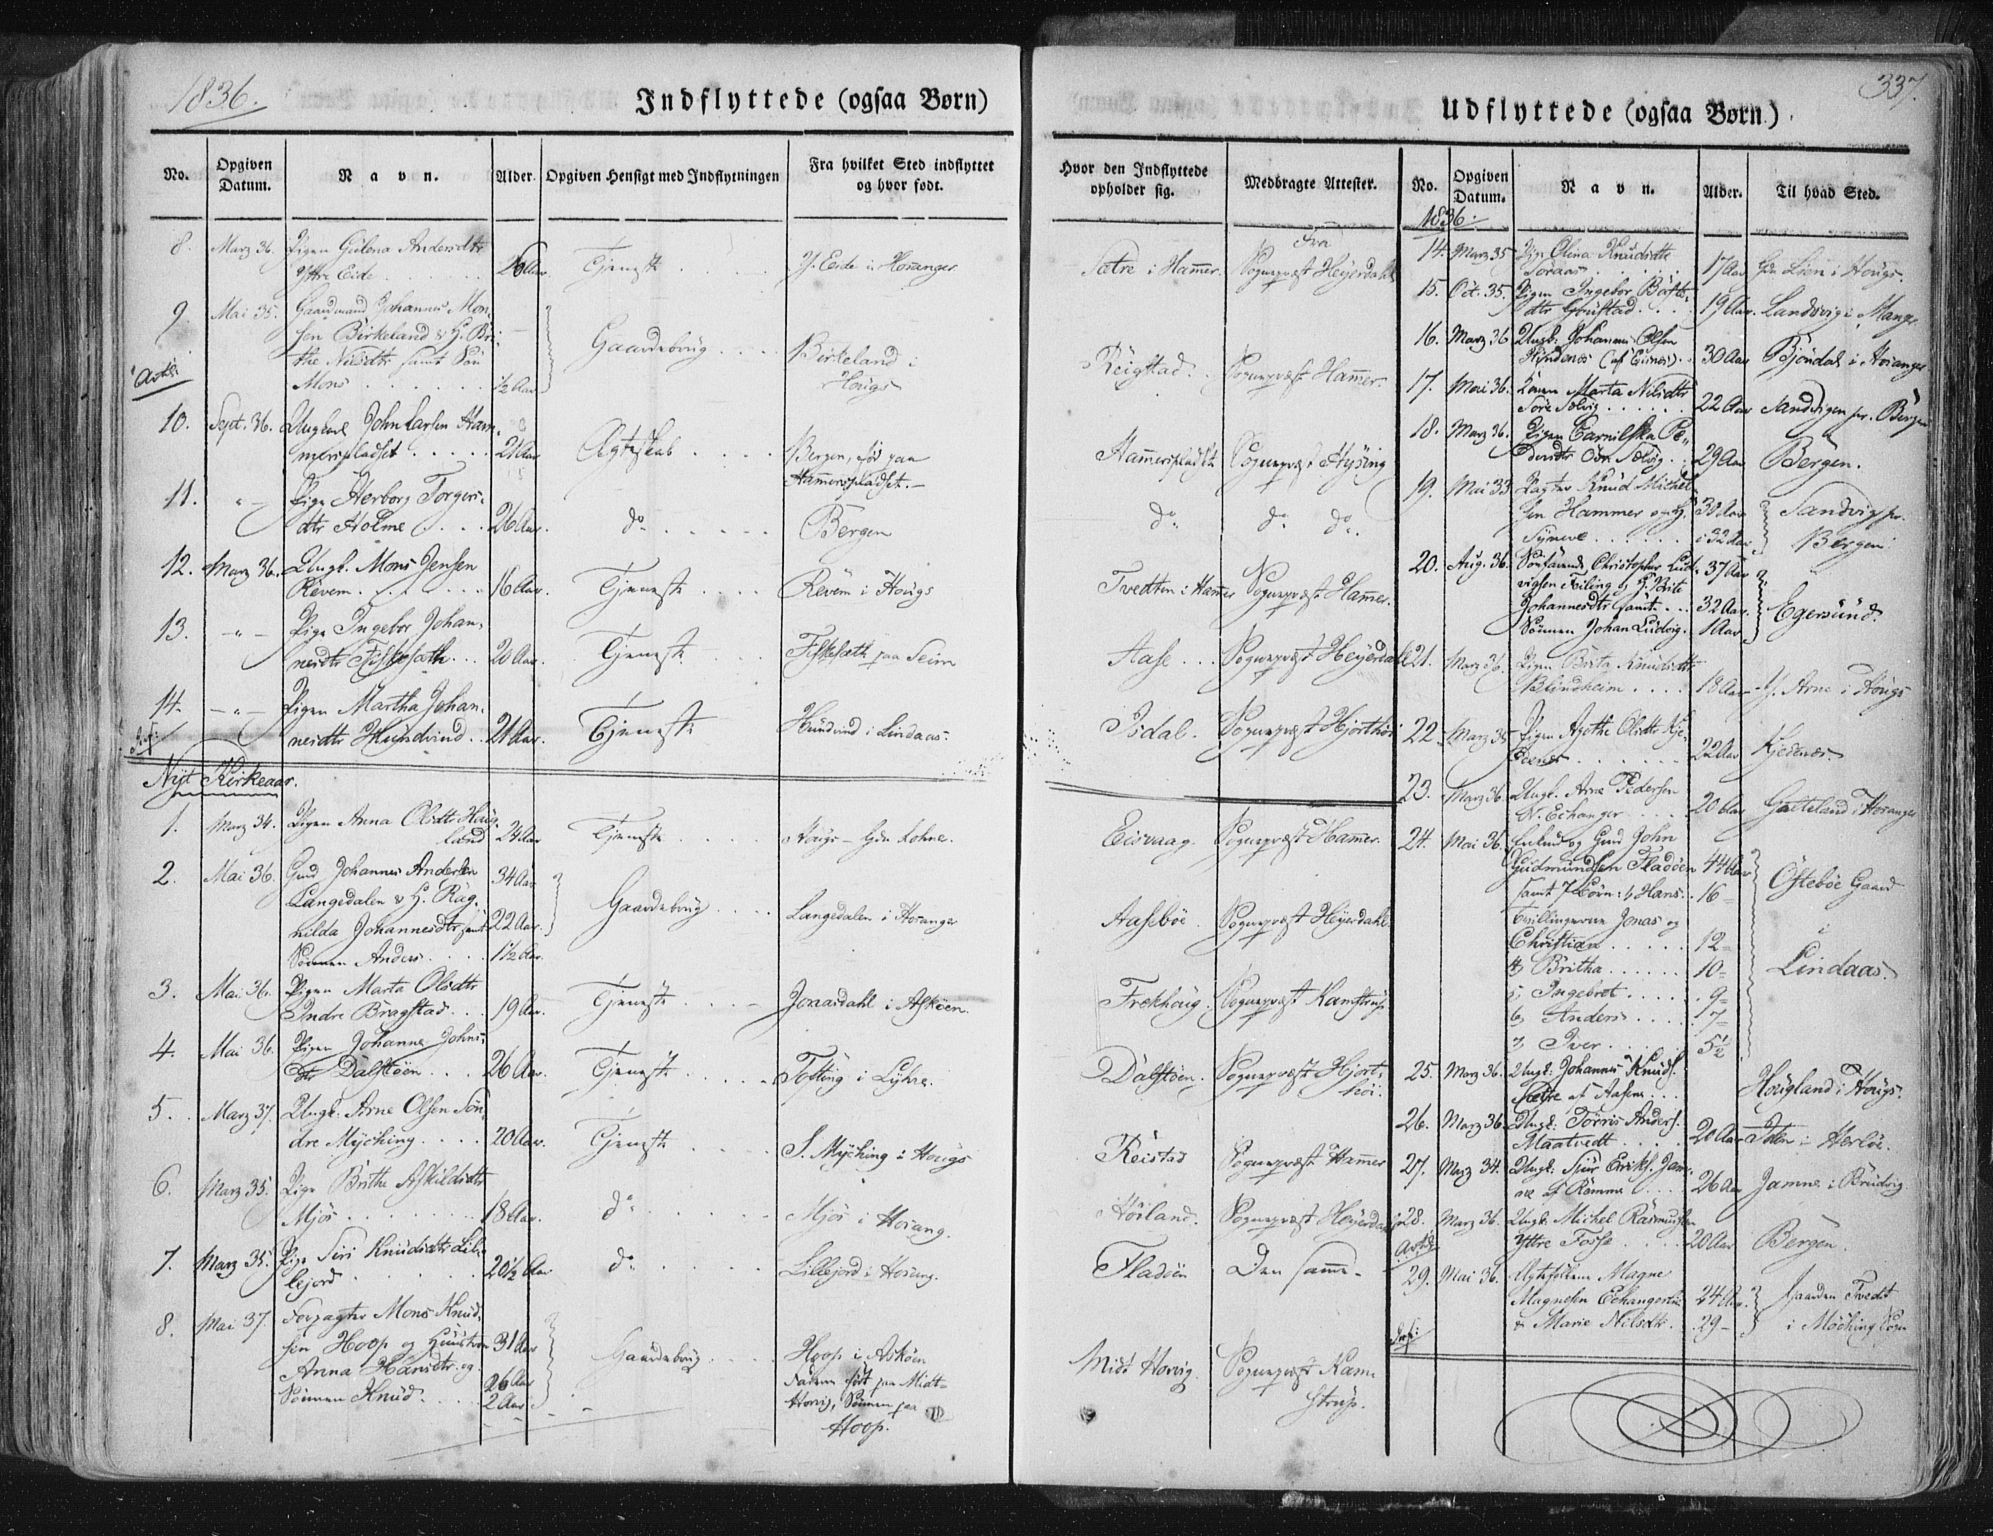 1836.
Indflyttede (ogsaa Børn)
No.
Opgiven Datum.
Navn.
Alder.
Opgiven Hensigt med Indflytningen
Fra hvilket Sted indflyttet og hvor født.
Hvor den Indflyttede opholder sig.
Medbragte Attester.
8. Marz 36. Pigen Gulena Andersdtr
Yttre Eide Aar. Tjeneste Y. Eide i Hosanger Sætre i Hamer. Fra Sognepræst Heyerdahl
9. Mai 35. Gaardmand Johannes Mon-
sen Birkeland & H. Bri-
the Nilsdtr samt Søn
Mons ½ Aar Gaardebrug Birkeland i Hougs Reigstad. Sognepræst Hamer.
10. Sept. 36. Ungkarl John Larsen Ham-
merspladset 21 Aar Ægteskab Bergen, født paa Hamerspladset. Hamerspladset Sognepræst Hysing
11. " — Pige Herborg Torgers-
dtr Holme 26 Aar. do Bergen do do do.
12. Marz 36. Ungk. Mons Jensen
Revem 16 Aar. Tjeneste Revem i Hougs Tvedten i Hamer Sognepræst Hamer.
13. — " — Pige Ingebor Johan-
nesdtr Fiskesæth 20 Aar. Tjeneste Fiskesæth paa Seim Aase Sognepræst Heyerdahl
14. — " — Pigen Martha Johan-
nesdtr Hundvind 21 Aar. Tjeneste Hundvind i Lindaas. Isdal. Sognepræst Hjorthøi
Nyt Kirkeaar.
1. Marz 34. Pigen Anna Olsdtr Haug-
land 24 Aar Tjeneste Hougs — Eisvaag. Sognepræst Hamer.
2. Mai 36. Gmd Johannes Andersen 34 Aar
Langedalen & H. Rag-
nilda Johannesdtr samt 22 Aar
Sønnen Anders 1½ Aar. Gaardebrug Langedalen i Hosanger Aasebøe Sognepræst Heyerdahl
3. Mai 36. Pigen Marta Olsdtr
Indre Bragstad 19 Aar. Tjeneste Joraasdahl i Askøen. Frekhoug. Sognepræst Kamstrup
4. Mai 36. Pigen Johanne Johns-
dtr Dalstøen 26 Aar. Tjeneste Tofting i Lyhre. Dalstøen. Sognepræst Hjort-
høi.
5. Marz 37. Ungk. Arne Olsen Søn-
dre Myching 20 Aar. Tjeneste S. Myching i Hougs Reistad Sognepræst Hamer
6. Marz 35. Pige Brithe Askildsdtr
Mjøs 18 Aar. do Mjøs i Hosang. Høiland. Sognepræst Heyerdahl
7. Marz 35. Pige Siri Knudsdtr Lil-
lejord 20½ Aar do Lillejord i Hosang. Fladøen Den samme
8. Mai 37. Forpagter Mons Knud-
sen Hoop og Hustroe 31 Aar
Anna Hansdtr og 26 Aar
Sønnen Knud 2 Aar Gaardebrug Hoop i Askøen
Faderen født paa Midt-
Horvig, Sønnen paa
Hoop. Midt Horvig. Sognepræst Kam-
strup.
337.
Udflyttede (ogsaa Børn.)
No.
Opgiven Datum.
Navn.
Alder.
Til hvad Sted.
1836.
14. Marz 35 Pige Olina Knudsdtr
Soraas 17 Aar Lien i Hougs.
15. Oct. 35. Pigen Ingebor
dtr 19 Aar. Landsvig i Manger
16. Marz 36 Ungk. Johannes Olsen
30 Aar Bjøndal i Hosanger
17. Mai 36. Konen Marta Nilsdtr
Søre Solvig 22 Aar Sandvigen pr. Bergen
18. Marz 36. Pigen Pe-
dersdtr Solvig 29 Aar Bergen.
19. Mai 33 Pagter Knud Michel-
sen Hammer og H.
Synneve 32 Aar Sandvig pr. Bergen.
20. Aug. 36. Christopher Lud- 37 Aar
vigsen & H. Brite
Johannesdtr samt 32 Aar.
Sønnen Johan Ludvig. 1 Aar Egersund.
21. Marz 36. Pigen Brita Knudsdtr
Blindheim 18 Aar Y. Arne i Hougs
22. Marz 35 Pigen Agethe Olsdtr Kje-
22 Aar Kjedenæs.
23. Marz 36. Ungk. Arne Pedersen
N. Echanger 20 Aar i Hosanger
24. Mai 36. Gmd John
Gudmundsen Fladøen 44 Aar
samt 7 Børn: 1, Hans. 16 —
Tvillingerne Jonas og
Christian 12 —
4, Britha 10 —
5, Ingebret 9 —
6, Anders 7 —
7, Iver 5½ Østebøe Gaard
i
Lindaas
25. Marz 36. Ungk. Johannes Knuds.
Sætre af Aasene Hougland i Hougs.
26. Marz 36. Ungk. Torris Anders.
Maatvedt 20 Aar i Herløe.
27. Marz 34. Ungk. Siur Eriks. Jam-
ne af Romme 26 Aar Jamne i Brudvig
28. Marz 36. Ungk. Michel Rasmussen
Yttre Fosse 20 Aar Bergen.
29. Mai 36. Ægtefolkene Magne
Magnesen Echanger 24 Aar.
& Marie Nilsdtr. 29 — Gaarden Tvedt
i Møching Sogn